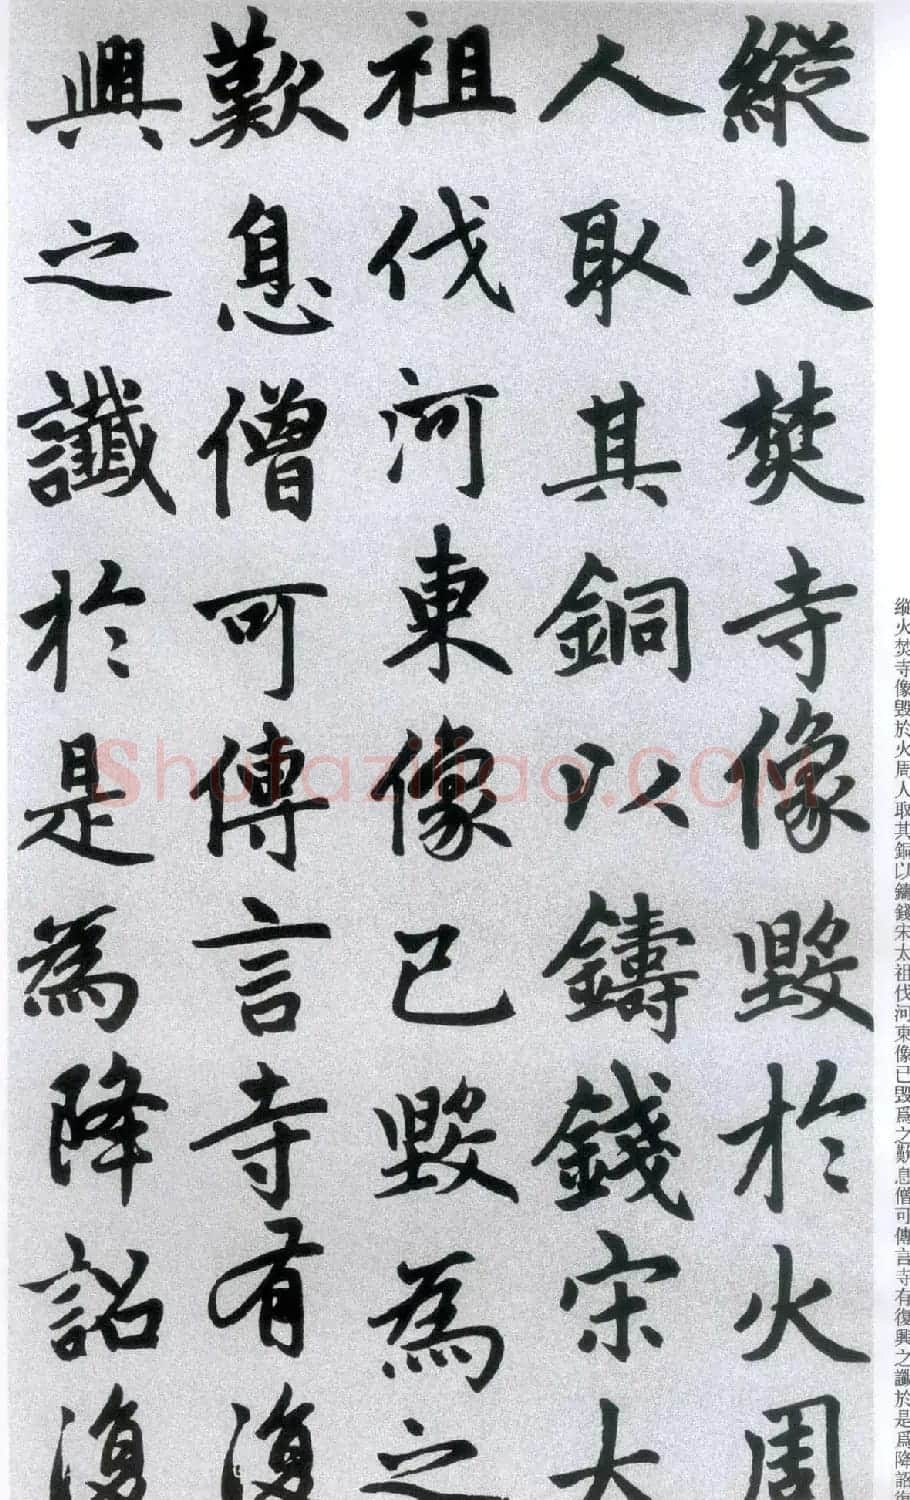 縱火焚寺像毀於火周
人取其銅以鑄錢宋太
祖伐河東像已毀為之
歎息僧可傳言寺有復
興之讖於是為降詔復
Shufaziliao.COM
縱火焚寺像毀於火周人取其銅以鑄錢宋太祖伐河東像已毀爲之歎息僧可傳言寺有復興之讖於是爲降詔復